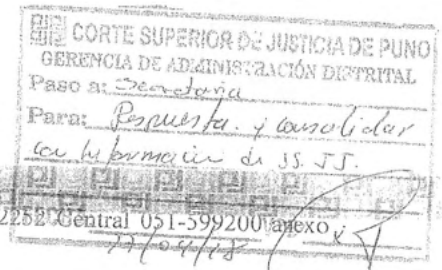 CORTE SUPERIOR DE JUSTICIA DE PUNO
GERENCIA DE ADMINISTRACIÓN DISTRITAL
Paso a: Secretaria
Para: Respuesta y consolidar
con información de JJ.
2252 Central 051-599200 anexo
17/04/18